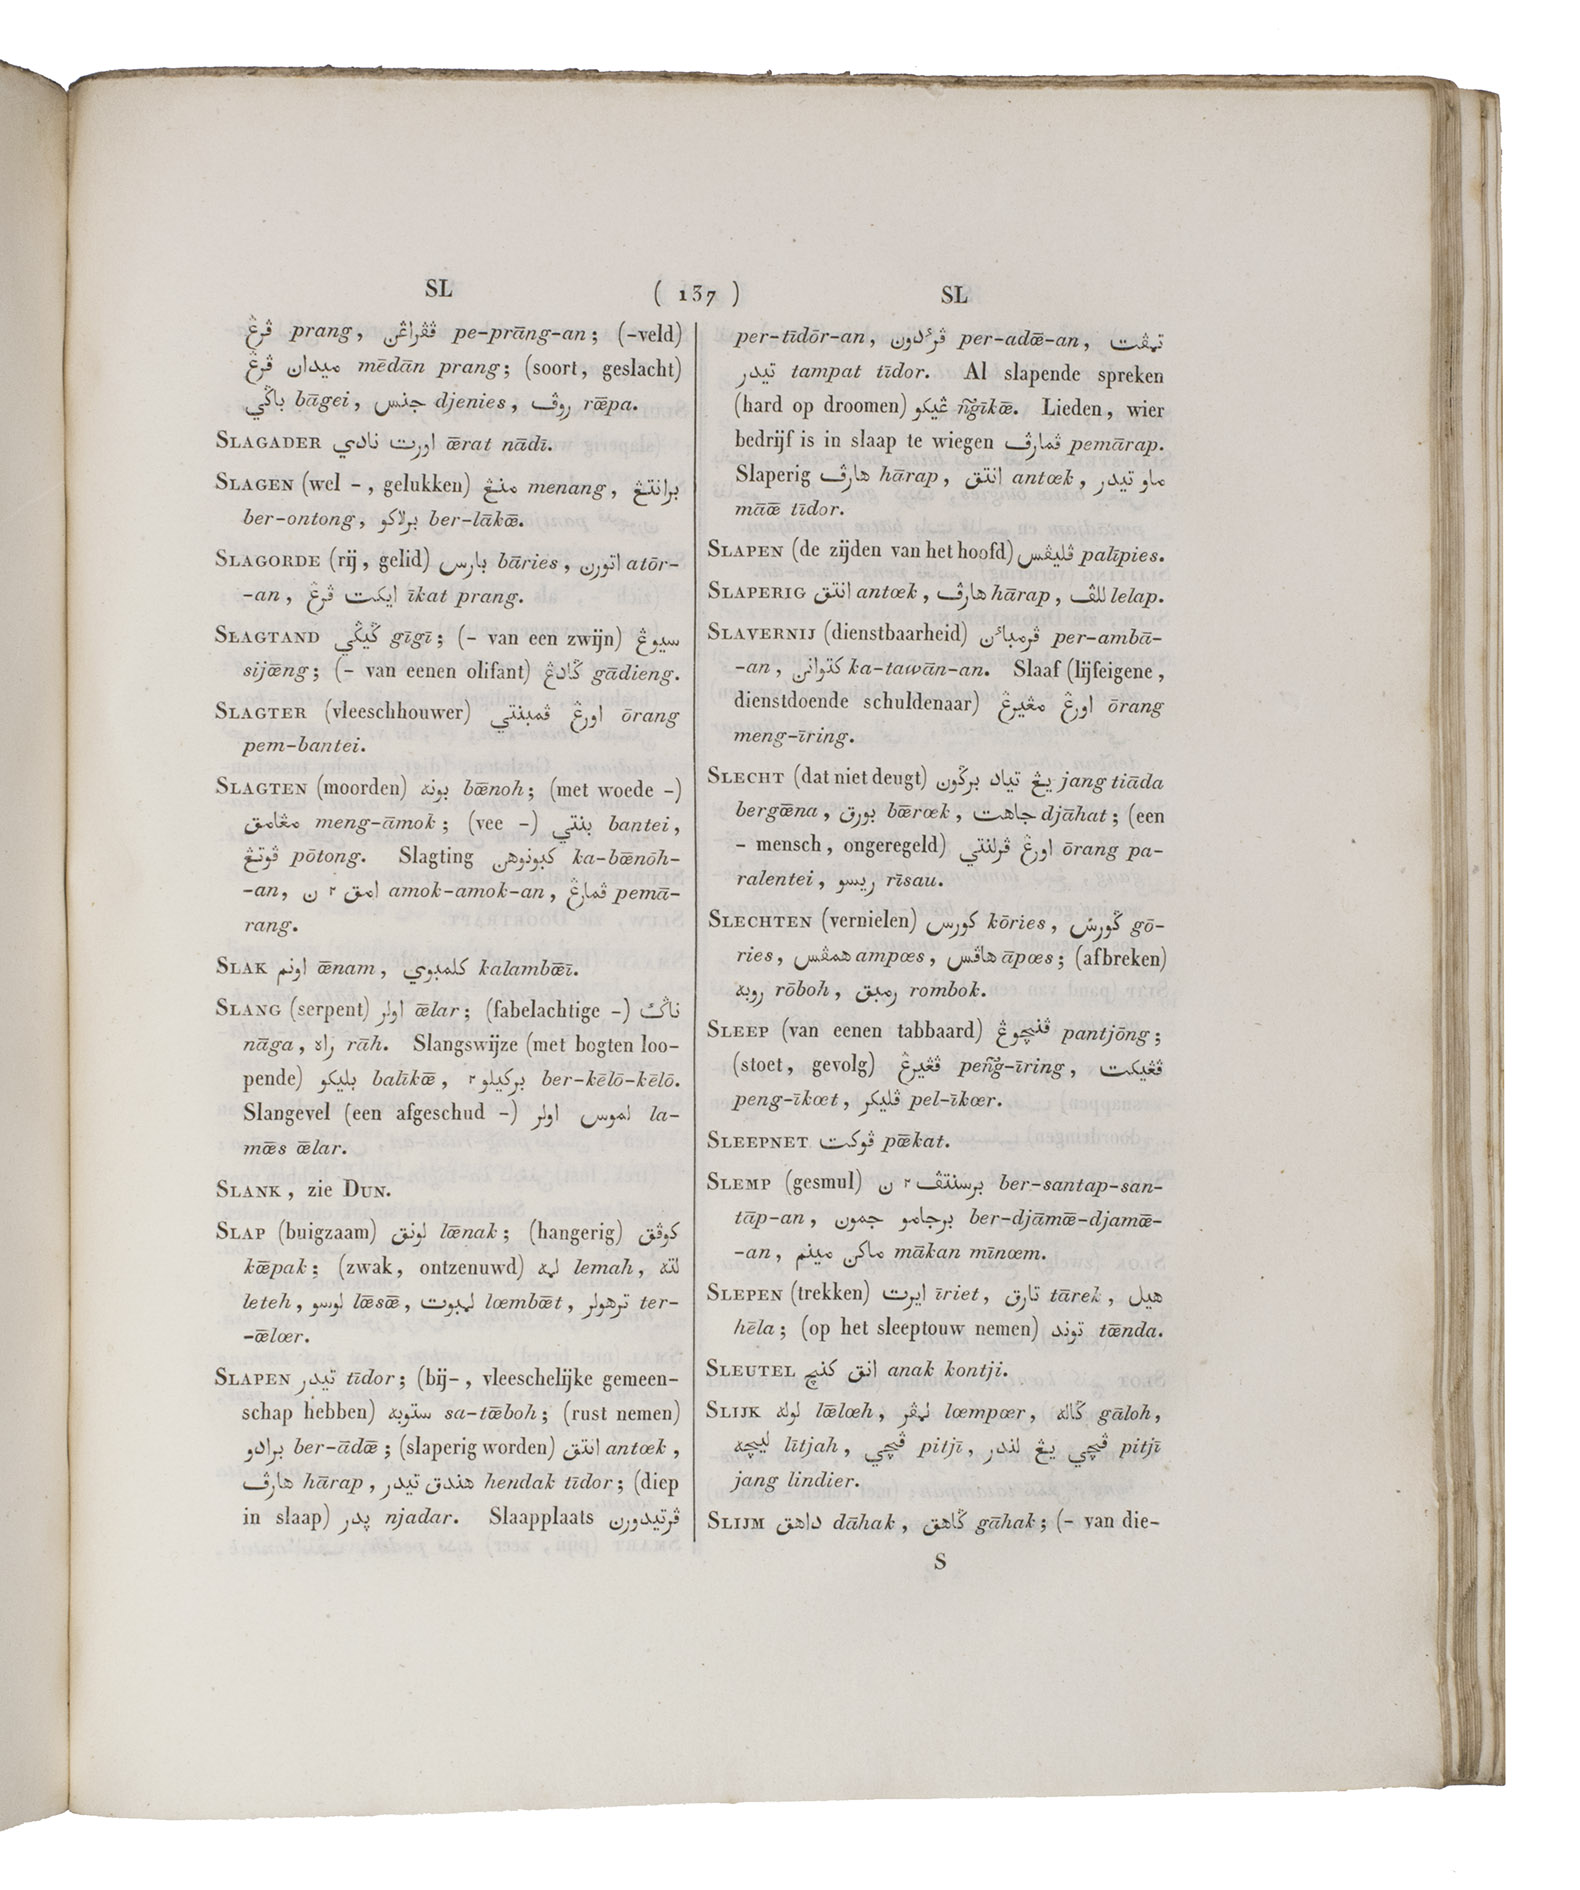 SL ( 137 ) SL
ڤرڠ prang, ڤڤراڠن pe-prāng-an; (-veld)
ميدان ڤرڠ mēdān prang; (soort, geslacht)
باڬي bāgei, جنس djenies, روڤ rœ̄pa.
SLAGADER اورت نادي œ̄rat nādī.
SLAGEN (wel -, gelukken) منڠ menang, برانتڠ
ber-ontong, برلاکو ber-lākœ̄.
SLAGORDE (rij, gelid) بارس bāries, اتورن atōr-
-an, ايکت ڤرڠ īkat prang.
SLAGTAND ڬيڬي gīgī; (- van een zwijn) سيوڠ
sijœ̄ng; (- van eenen olifant) ڬادڠ gādieng.
SLAGTER (vleeschhouwer) اورڠ ڤمبنتي ōrang
pem-bantei.
SLAGTEN (moorden) بونه bœ̄noh; (met woede -)
مڠامق meng-āmok; (vee -) بنتي bantei,
ڤوتڠ pōtong. Slagting کبونوهن ka-bœ̄nōh-
-an, امق ٢ ن amok-amok-an, ڤمارڠ pemā-
rang.
SLAK اونم œ̄nam, کلمبوي kalambœ̄ī.
SLANG (serpent) اولر œ̄lar; (fabelachtige -) ناڬ
nāga, راه rāh. Slangswijze (met bogten loo-
pende) بليکو balīkœ̄, برکيلو ٢ ber-kēlō-kēlō.
Slangevel (een afgeschud -) لموس اولر la-
mœ̄s œ̄lar.
SLANK, zie DUN.
SLAP (buigzaam) لونق lœ̄nak; (hangerig) کوڤق
kœ̄pak; (zwak, ontzenuwd) لمه lemah, لته
leteh, لوسو lœ̄sœ̄, لمبوت lœmbœ̄t, ترهولر ter-
-œ̄lœr.
SLAPEN تيدر tīdor; (bij-, vleeschelijke gemeen-
schap hebben) ستوبه sa-tœ̄boh; (rust nemen)
برادو ber-ādœ̄; (slaperig worden) انتق antœk,
هارڤ hārap, هندق تيدر hendak tīdor; (diep
in slaap) پدر njadar. Slaapplaats ڤرتيدورن
per-tīdōr-an, ڤرٴدون per-adœ̄-an, تمڤت
تيدر tampat tīdor. Al slapende spreken
(hard op droomen) ڠيکو n͠gīkœ̄. Lieden, wier
bedrijf is in slaap te wiegen ڤمارڤ pemārap.
Slaperig هارڤ hārap, انتق antœk, ماو تيدر
māœ̄ tīdor.
SLAPEN (de zijden van het hoofd) ڤليڤس palīpies.
SLAPERIG انتق antœk, هارڤ hārap, للڤ lelap.
SLAVERNIJ (dienstbaarheid) ڤرمباٴن per-ambā-
-an, کتوانن ka-tawān-an. Slaaf (lijfeigene,
dienstdoende schuldenaar) اورڠ مڠيرڠ ōrang
meng-īring.
SLECHT (dat niet deugt) يڠ تياد برڬون jang tiāda
bergœ̄na, بورق bœ̄rœk, جاهت djāhat; (een
- mensch, ongeregeld) اورڠ ڤرلنتي ōrang pa-
ralentei, ريسو rīsau.
SLECHTEN (vernielen) کورس kōries, ڬورس gō-
ries, همڤس ampœs, هاڤس āpœs; (afbreken)
روبه rōboh, رمبق rombok.
SLEEP (van eenen tabbaard) ڤنچوڠ pantjōng;
(stoet, gevolg) ڤڠيرڠ pen͠g-īring, ڤڠيکت
peng-īkœt, ڤليکر pel-īkœr.
SLEEPNET ڤوکت pœ̄kat.
SLEMP (gesmul) برسنتڤ ٢ ن ber-santap-san-
tāp-an, برجامو جمون ber-djāmœ̄-djamœ̄-
-an, ماکن مينم mākan mīnœm.
SLEPEN (trekken) ايرت īriet, تارق tārek, هيل
hēla; (op het sleeptouw nemen) توند tœ̄nda.
SLEUTEL انق کنچي anak kontji.
SLIJK لوله lœ̄lœh, لمڤر lœmpœr, ڬاله gāloh,
ليچه lītjah, ڤيچي pitjī, ڤيچي يڠ لندر pitjī
jang lindier.
SLIJM داهق dāhak, ڬاهق gāhak; (- van die-
S